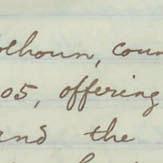 lhoun, coun
05, offering
and the